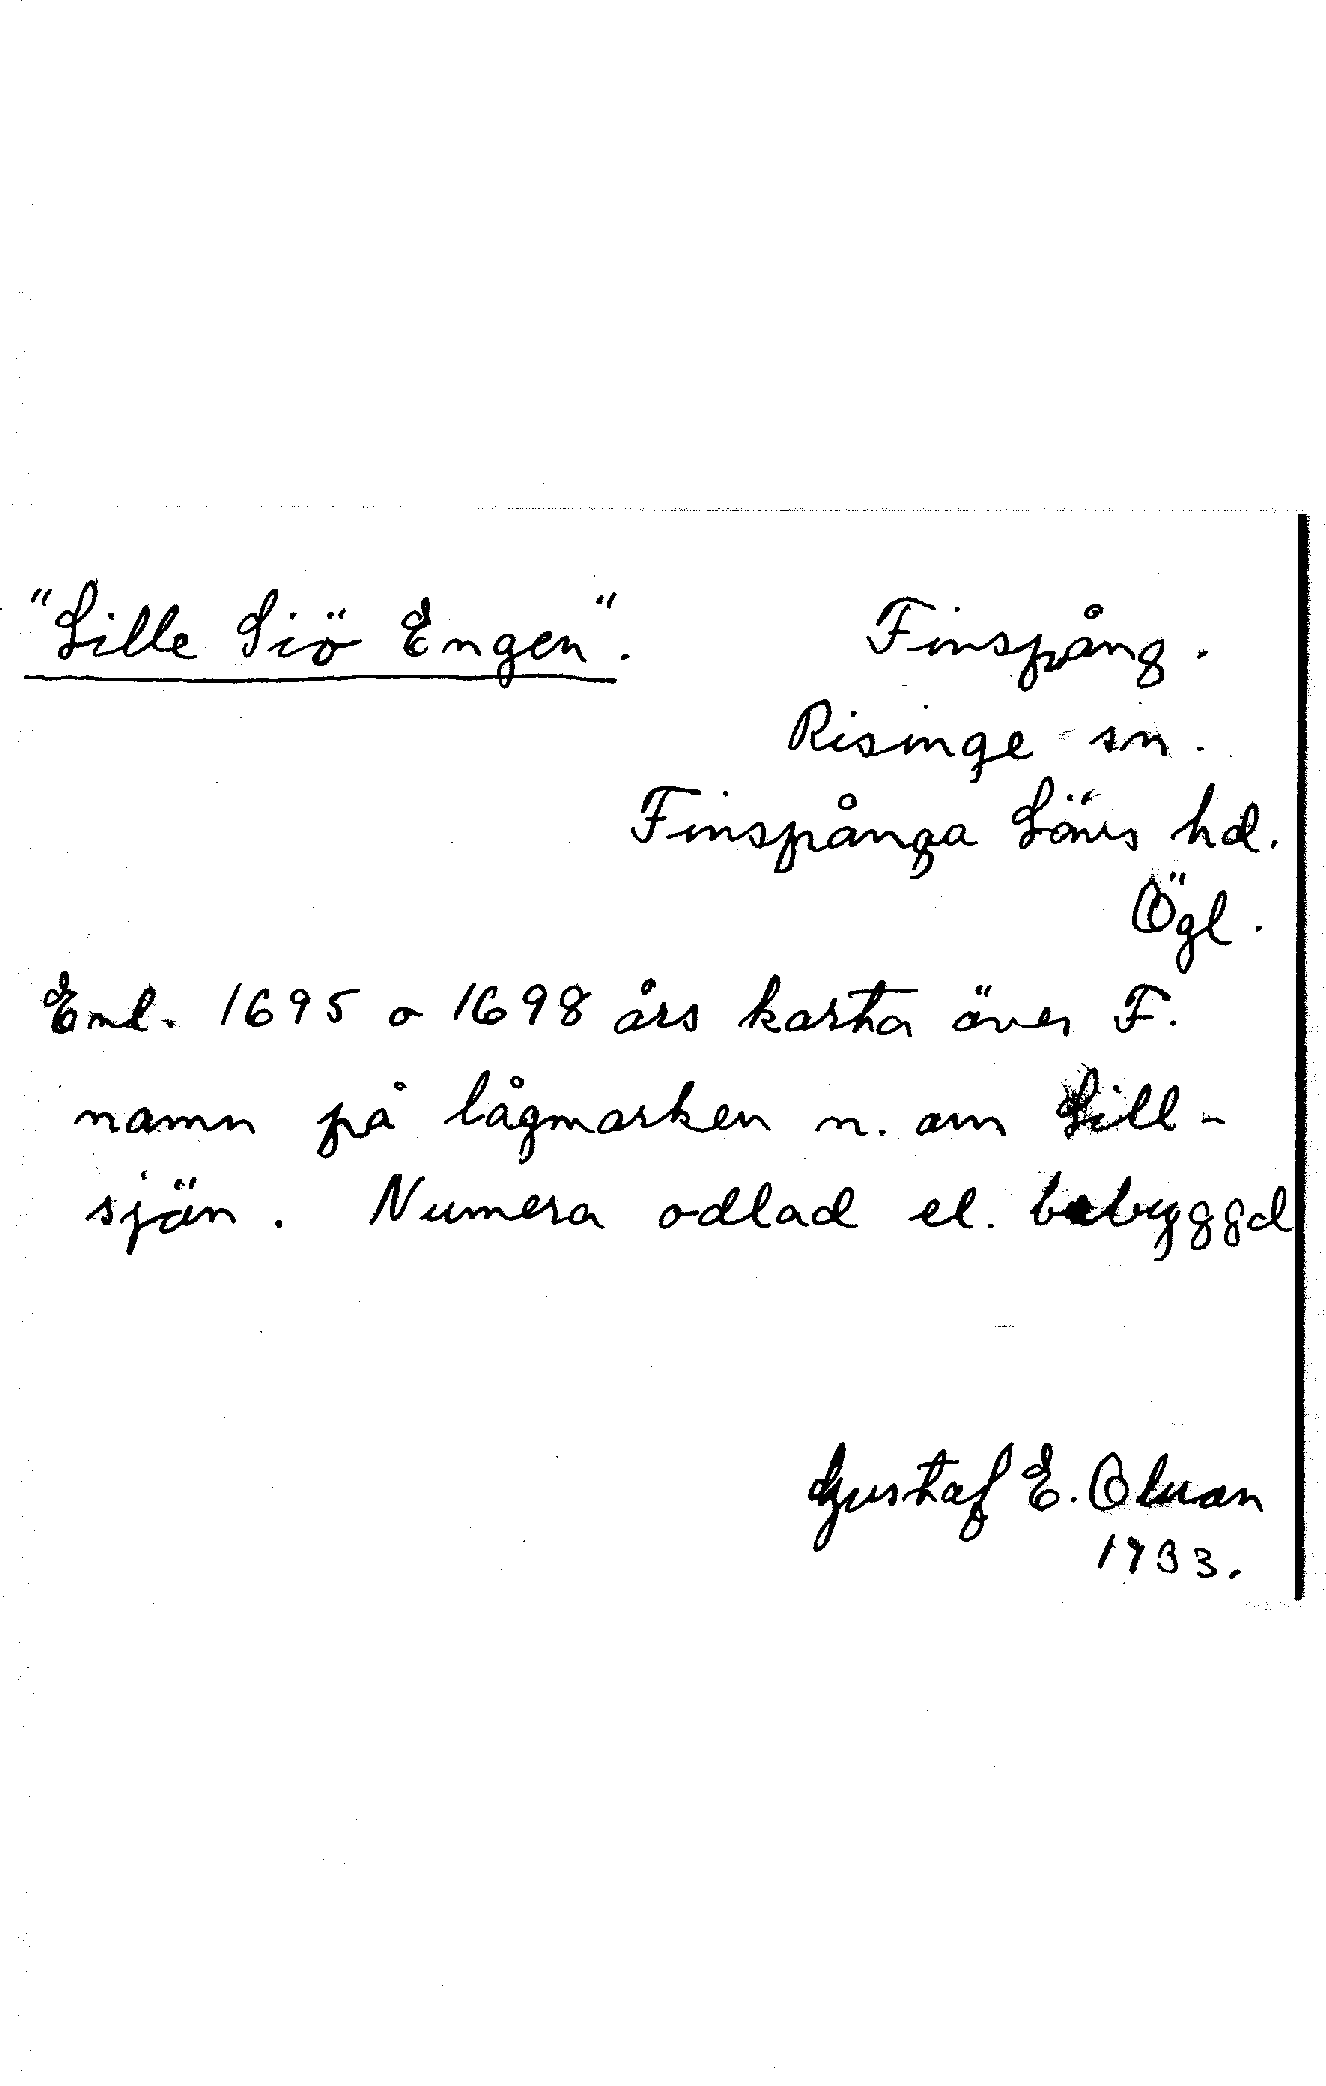 "Lille Siö Engen". Finspång.
Risinge sn.
Finspånga Läns hd.
Ögl.
Enl. 1695 o 1698 års karta över F.
namn på lågmarken n. om Lill-
sjön. Numera odlad el. bebyggd
Gustaf E. Olsson
1933.